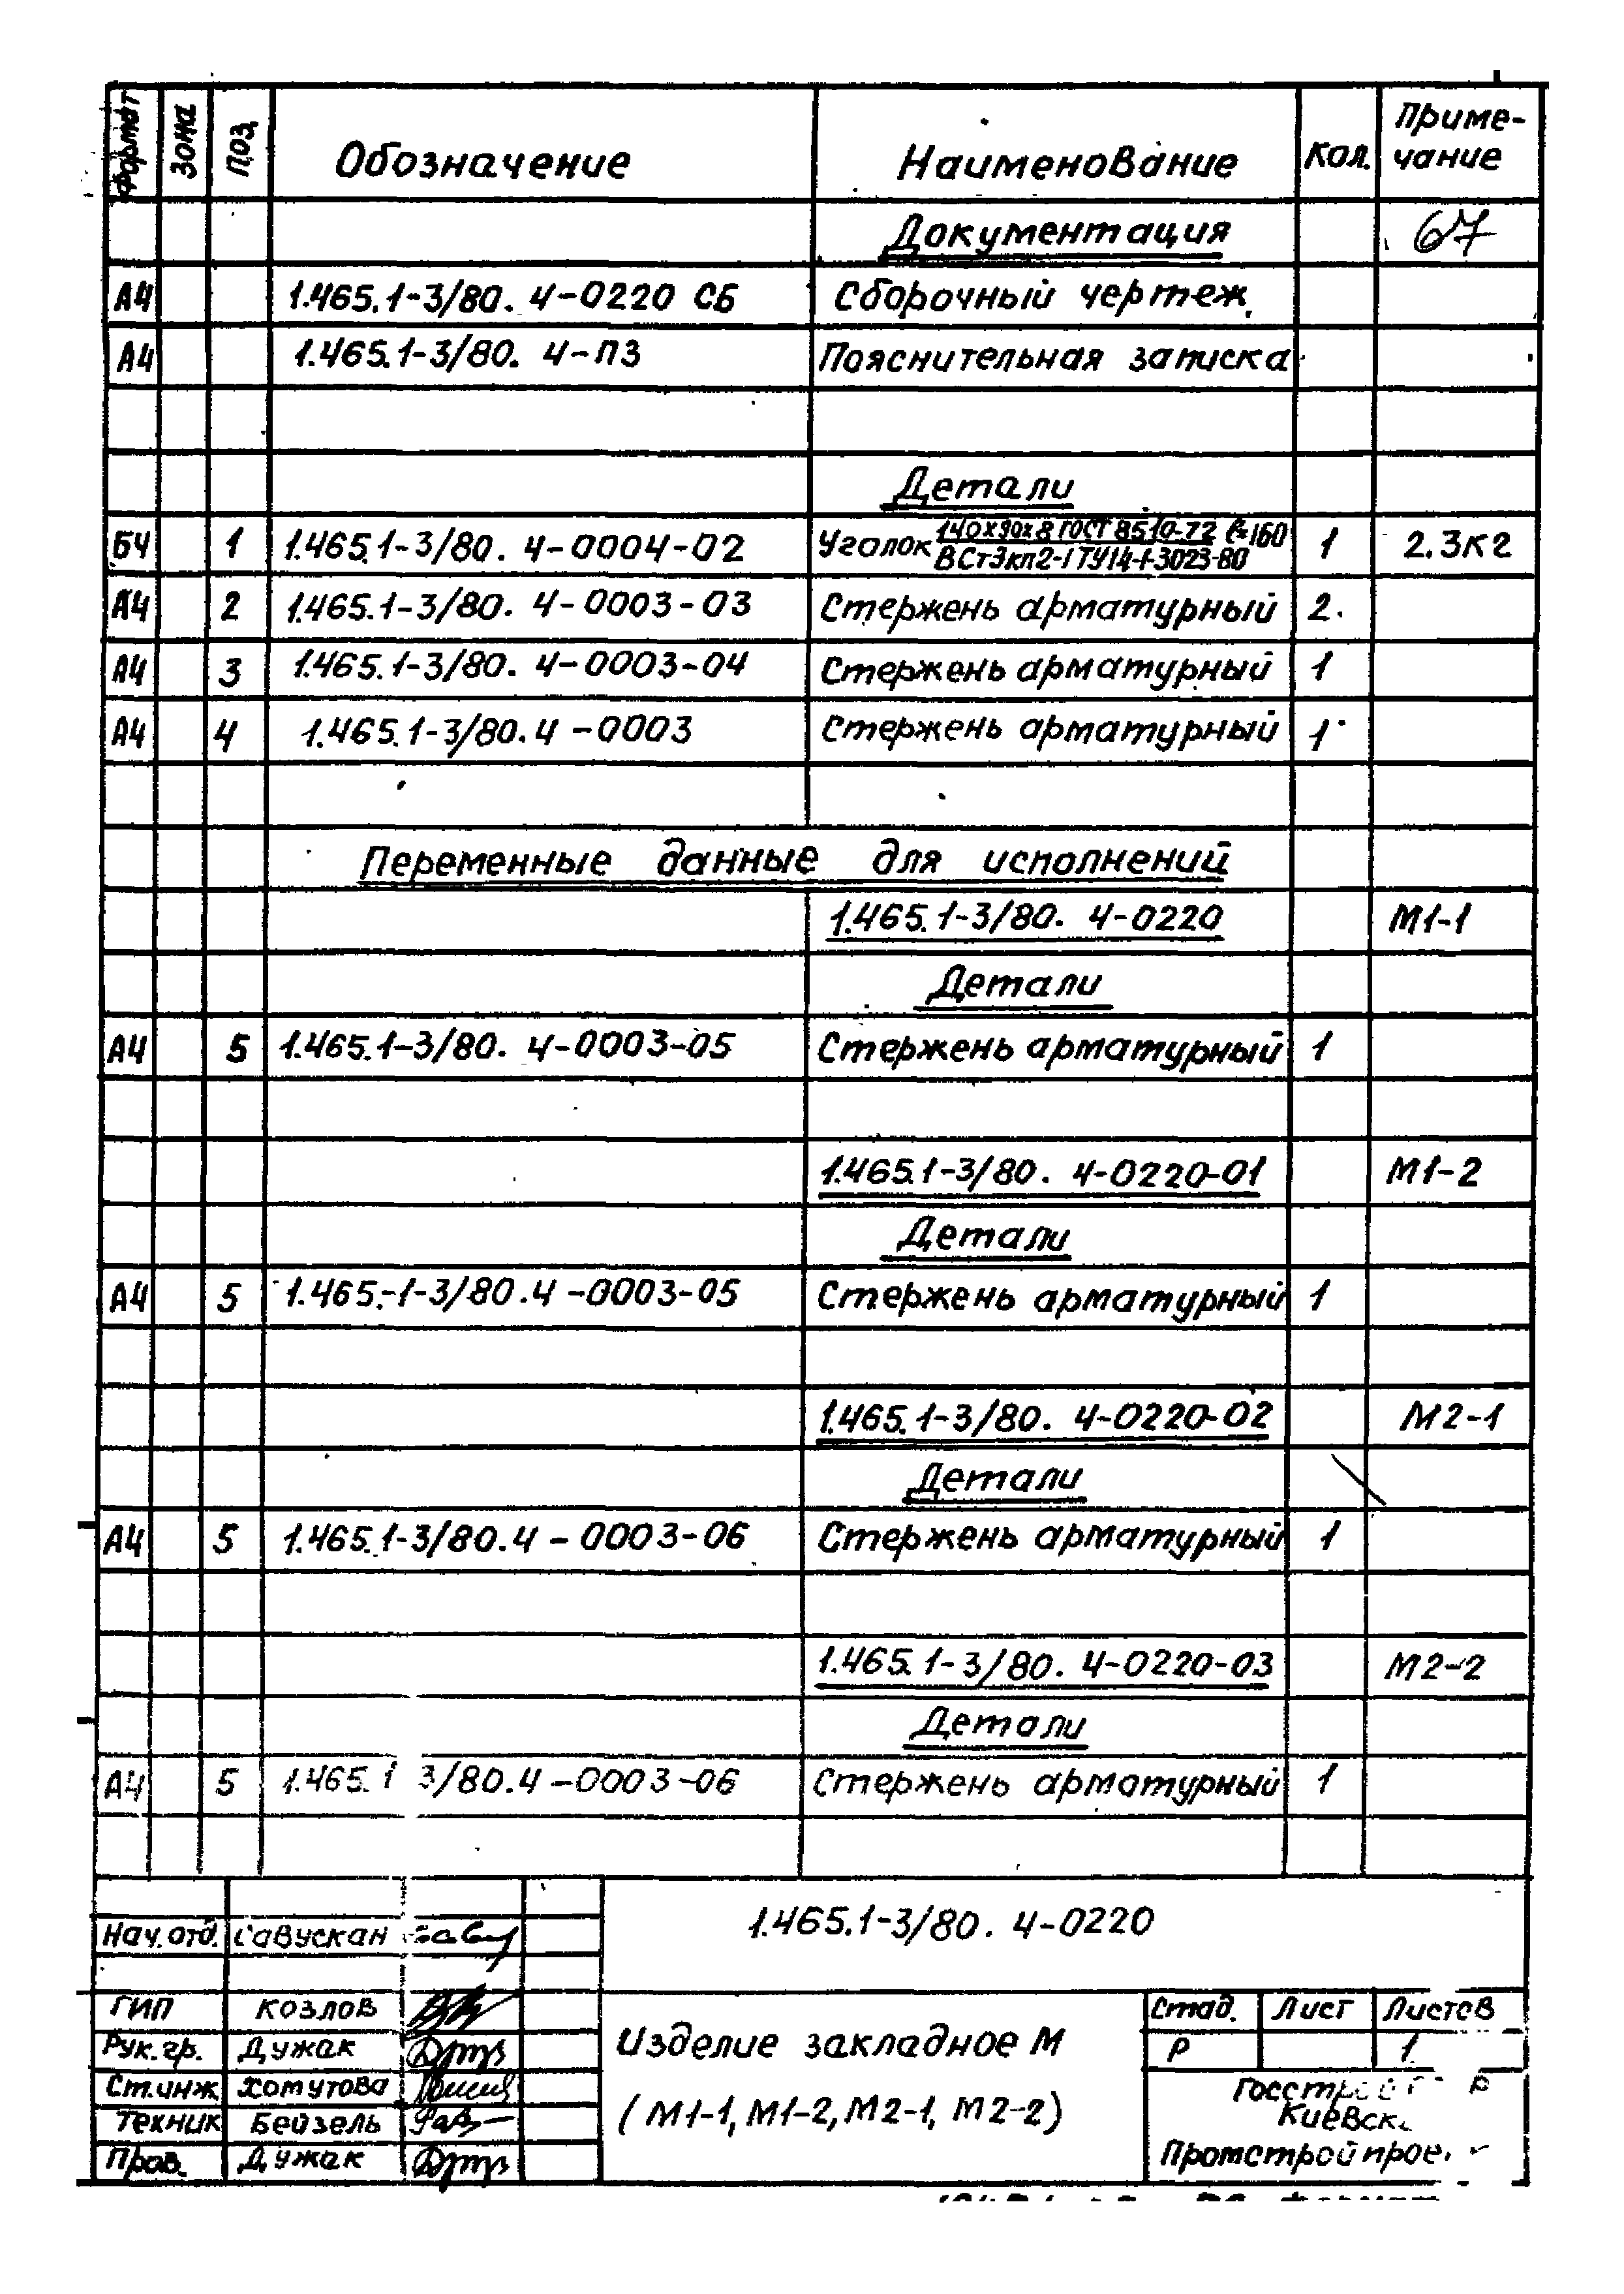 Формат Зона Поз. Обозначение Наименование Кол. Приме-
чание
Документация 67
А4 1.465.1-3/80. 4-0220 СБ Сборочный чертеж
А4 1.465.1-3/80. 4-ПЗ Пояснительная записка
Детали
БЧ 1 1.465.1-3/80. 4-0004-02 Уголок 140х90х8 ГОСТ 8510-72 ℓ=160 1 2.3кг
ВСт3кп2-1 ТУ14-1-3023-80
А4 2 1.465.1-3/80. 4-0003-03 Стержень арматурный 2.
А4 3 1.465.1-3/80. 4-0003-04 Стержень арматурный 1
А4 4 1.465.1-3/80.4-0003 Стержень арматурный 1
Переменные данные для исполнений
1.465.1-3/80. 4-0220 М1-1
Детали
А4 5 1.465.1-3/80. 4-0003-05 Стержень арматурный 1
1.465.1-3/80. 4-0220-01 М1-2
Детали
А4 5 1.465.-1-3/80.4-0003-05 Стержень арматурный 1
1.465.1-3/80. 4-0220-02 М2-1
Детали
А4 5 1.465.1-3/80.4-0003-06 Стержень арматурный 1
1.465.1-3/80. 4-0220-03 М2-2
Детали
А4 5 1.465.1 3/80.4-0003-06 Стержень арматурный 1
1.465.1-3/80. 4-0220
Нач.отд. Савускан
ГИП Козлов
Рук.гр. Дужак
Ст.инж Хотутова
Техник Бейзель
Пров. Дужак
Изделие закладное М
(М1-1, М1-2, М2-1, М2-2)
Стад. Лист Листов
Р 1
Госстрой Р
Киевск
Промстройпрое